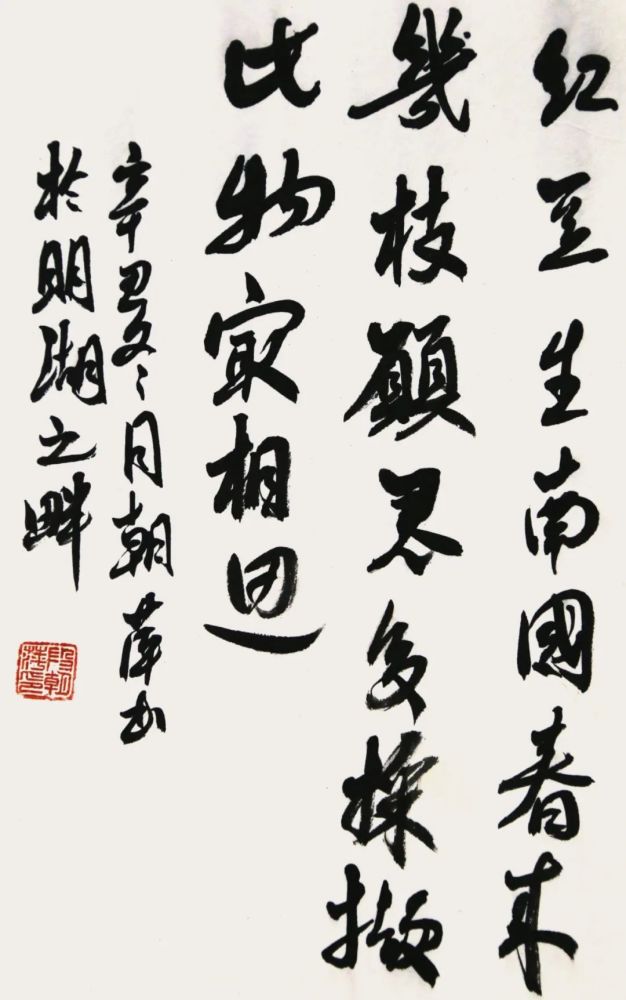 红豆生南國春来
幾枝願君多採擷
此物㝡相思
辛丑冬月朝书
於明湖之畔